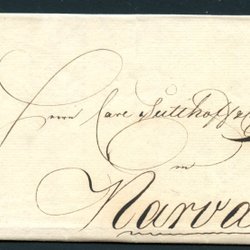 Herrn Carl Sutthoff
in
Narva